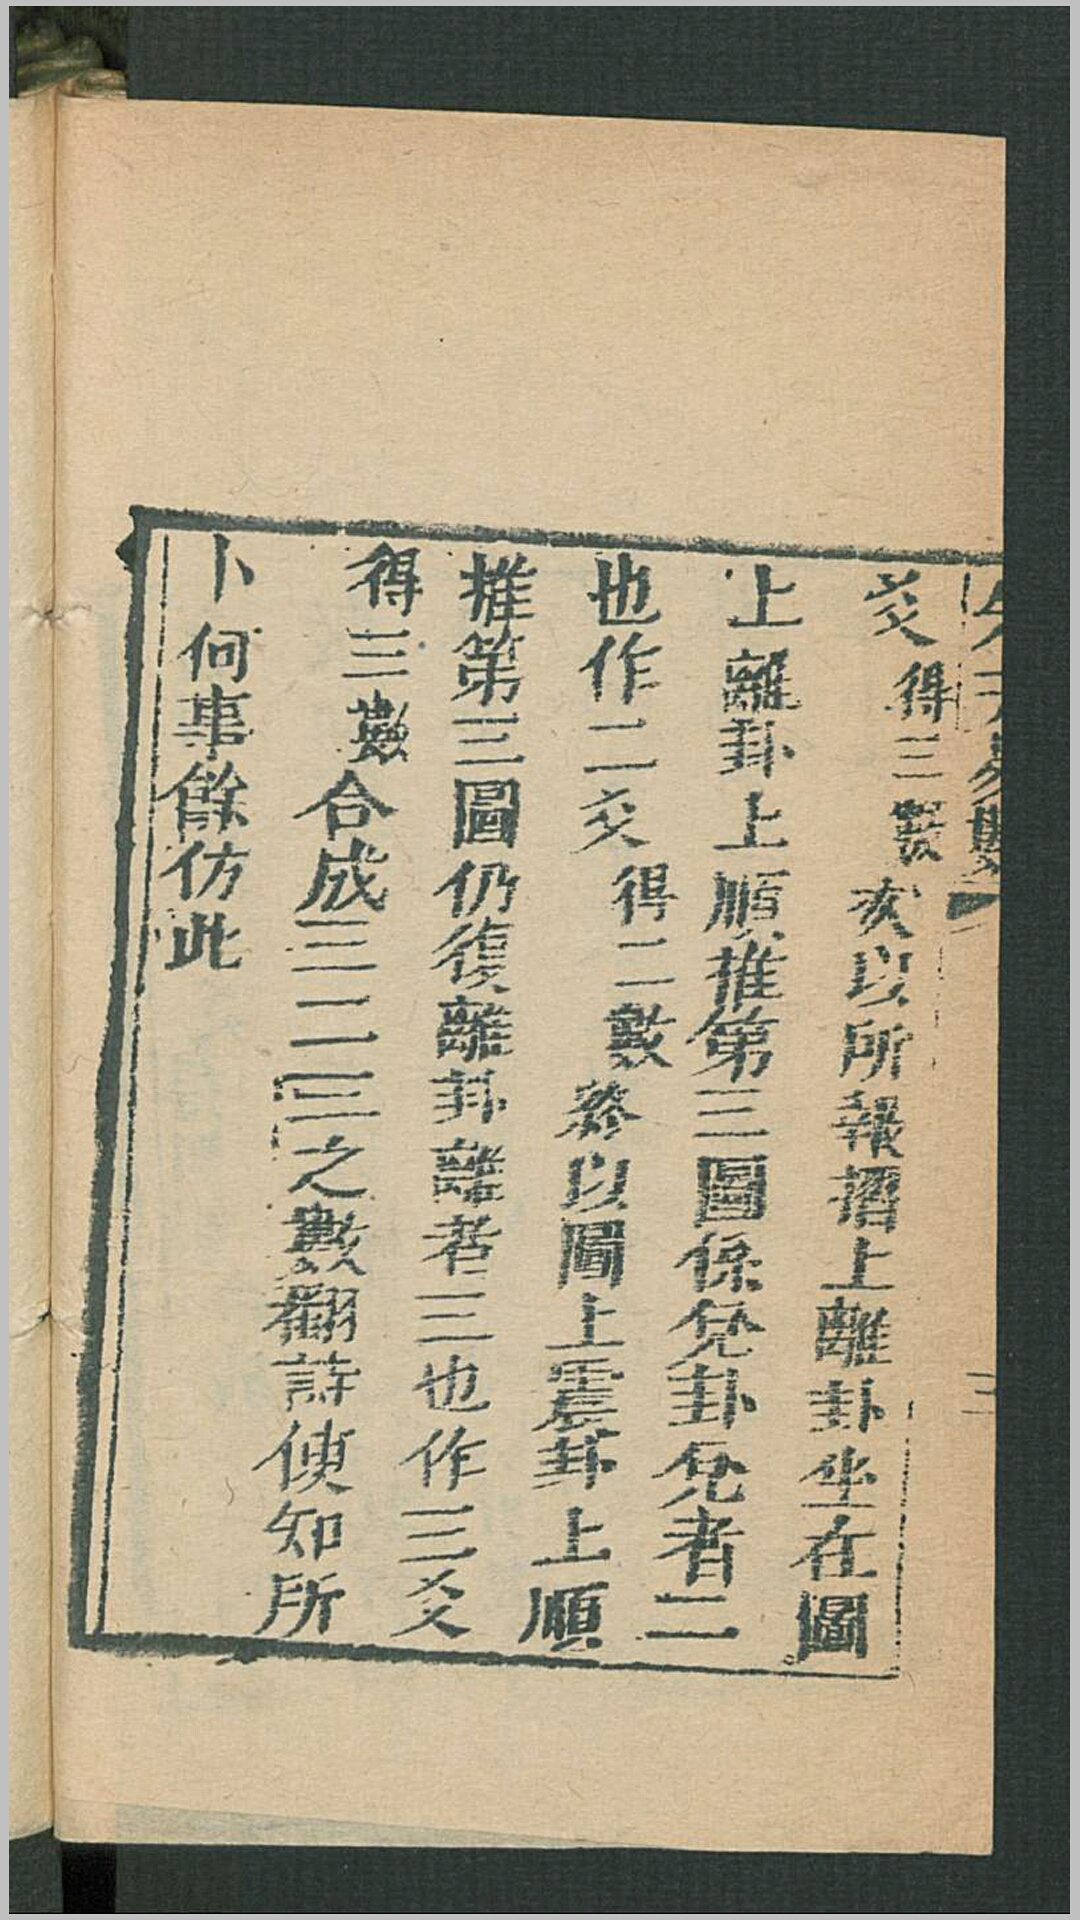 爻得三數次以所報搯上離卦坐在圖
上離卦上順推第三圖係兌卦兌者二
也作二爻得二數終以圖上震卦上順
推第三圖仍復離卦離者三也作三爻
得三數合成三二三之數翻詩便知所
卜何事餘仿此